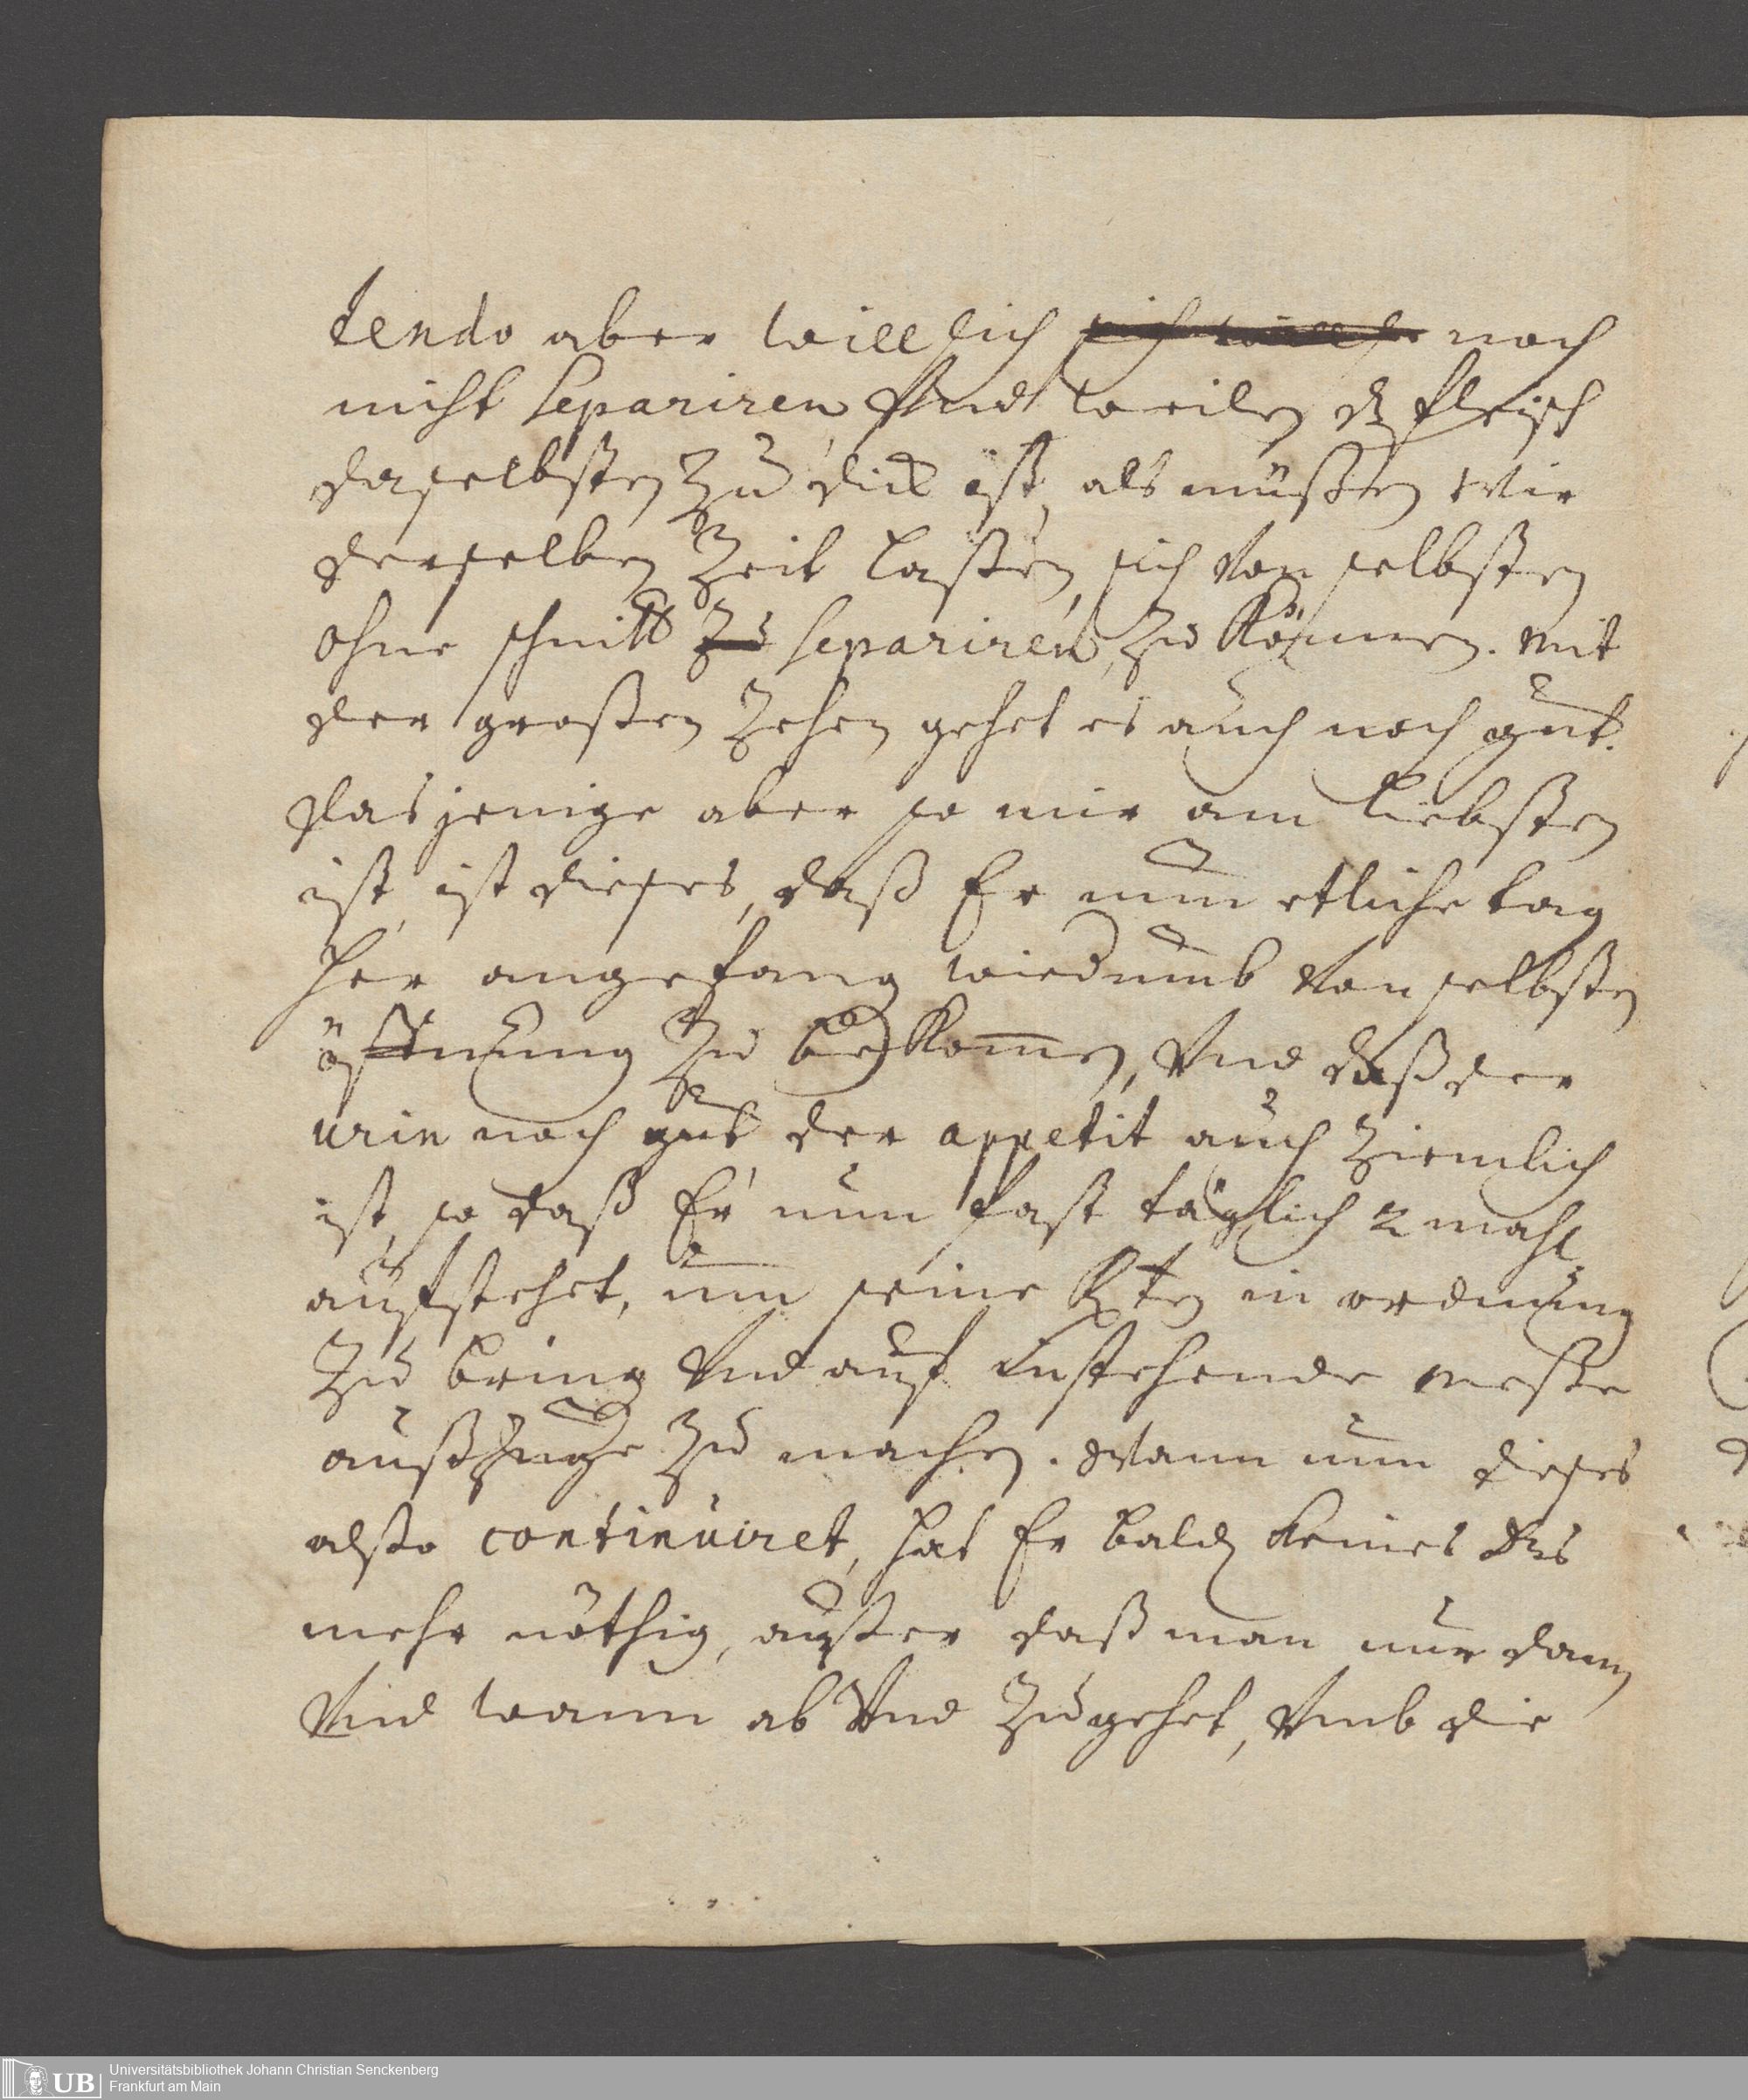 tendo aber will sich noch
nicht separiren, Vnd weilen dz fleisch
daselbsten zu dick ist, als müßen wir
derselben Zeit laßen, sich von selbsten
ohne schnitt zu separiren, zu können. mit
der großen Zehen gehet es auch noch gut.
dasjenige aber so mir am liebsten
ist, ist dieses, daß Er nun etliche tag
her angefang wiederumb von selbsten
öffnung zu bekom̄en, Vnd daß der
urin noch gut der appetit auch ziemlich
ist, so daß Er nun fast täglich 2 mahl
aufstehet, um seine in ordnung
zu bring Vnd auf instehende meße
außzuge zu machen. Wann nun dieses
also continuiret, hat Er bald keines
mehr nöthig, außer daß man nur dann
Vnd wann ab Vnd zu gehet, Vmb die
UB Universitätsbibliothek Johann Christian Senckenberg
Frankfurt am Main